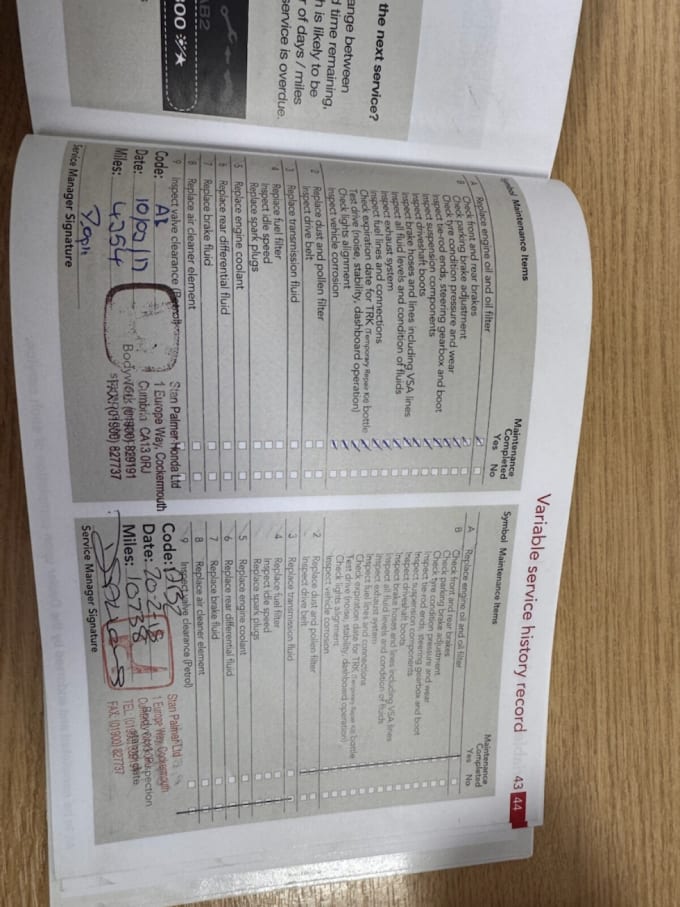 the next service?
ange between
d time remaining,
h is likely to be
r of days / miles
service is overdue.
AB2
Variable service history record
43 44
Symbol Maintenance Items
Maintenance
Completed
Yes No
A Replace engine oil and oil filter
B Check front and rear brakes
Check parking brake adjustment
Check tyre condition pressure and wear
Inspect tie-rod ends, steering gearbox and boot
Inspect suspension components
Inspect driveshaft boots
Inspect brake hoses and lines including VSA lines
Inspect all fluid levels and condition of fluids
Inspect exhaust system
Inspect fuel lines and connections
Check expiration date for TRK (Temporary Repair Kit) bottle
Test drive (noise, stability, dashboard operation)
Check lights alignment
Inspect vehicle corrosion
2 Replace dust and pollen filter
Inspect drive belt
3 Replace transmission fluid
4 Replace fuel filter
Inspect idle speed
Replace spark plugs
5 Replace engine coolant
6 Replace rear differential fluid
7 Replace brake fluid
8 Replace air cleaner element
9 Inspect valve clearance (Petrol)
Code:
Date: 10/02/17
Miles: 4254
Stan Palmer Honda Ltd
1 Europe Way, Cockermouth
Cumbria CA13 0RJ
(01900) 829191
FAX: (01900) 827737
Service Manager Signature
Symbol Maintenance Items
Maintenance
Completed
Yes No
A Replace engine oil and oil filter
B Check front and rear brakes
Check parking brake adjustment
Check tyre condition pressure and wear
Inspect tie-rod ends, steering gearbox and boot
Inspect suspension components
Inspect driveshaft boots
Inspect brake hoses and lines including VSA lines
Inspect all fluid levels and condition of fluids
Inspect exhaust system
Inspect fuel lines and connections
Check expiration date for TRK (Temporary Repair Kit) bottle
Test drive (noise, stability, dashboard operation)
Check lights alignment
Inspect vehicle corrosion
2 Replace dust and pollen filter
Inspect drive belt
3 Replace transmission fluid
4 Replace fuel filter
Inspect idle speed
Replace spark plugs
5 Replace engine coolant
6 Replace rear differential fluid
7 Replace brake fluid
8 Replace air cleaner element
9 Inspect valve clearance (Petrol)
Code:
Date: 20-2-18
Miles: 10738
Stan Palmer Ltd
1 Europe Way, Cockermouth
FAX: (01900) 827737
Service Manager Signature